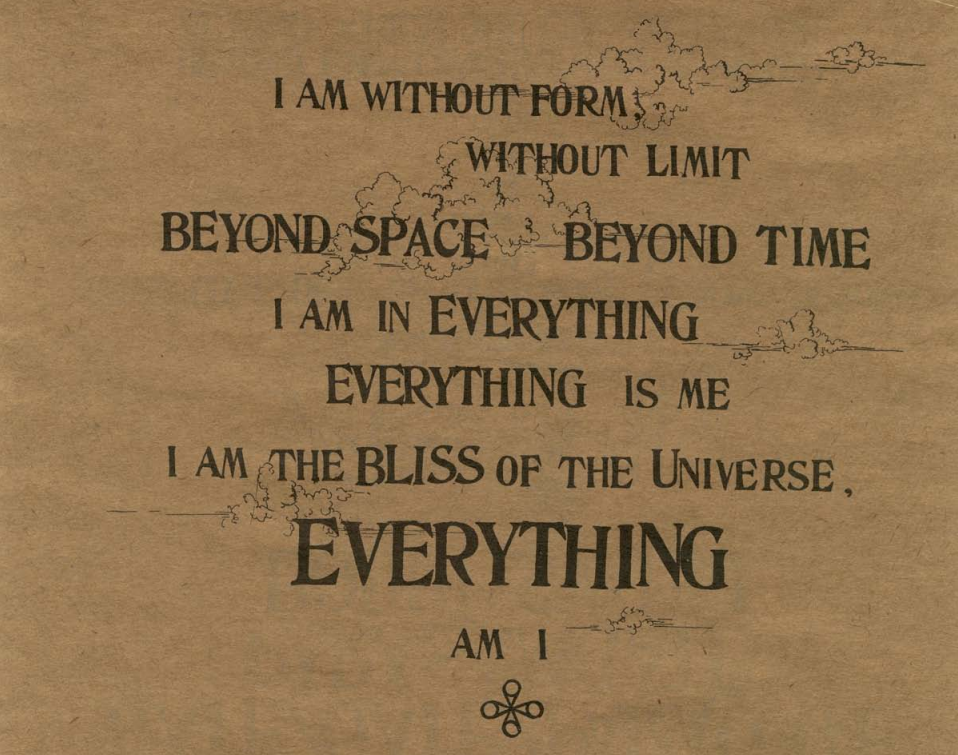 I AM WITHOUT FORM,
WITHOUT LIMIT
BEYOND SPACE BEYOND TIME
I AM IN EVERYTHING
EVERYTHING IS ME
I AM THE BLISS OF THE UNIVERSE,
EVERYTHING
AM I